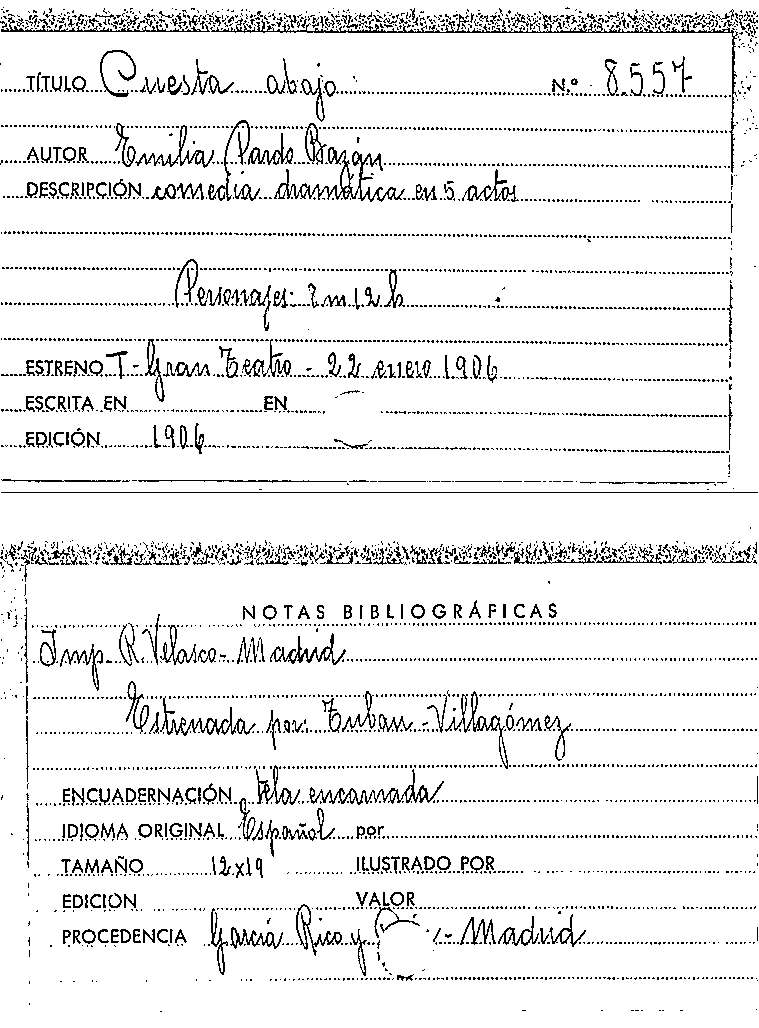 TÍTULO Cuesta abajo N.º 8.557
AUTOR Emilia Pardo Bazán
DESCRIPCIÓN comedia dramática en 5 actos
Personajes: 7 m 12 h
ESTRENO T - Gran Teatro - 22 enero 1906
ESCRITA EN EN
EDICIÓN 1906
NOTAS BIBLIOGRÁFICAS
Imp. R. Velasco - Madrid
Estrenada por: Tubau - Villagómez
ENCUADERNACIÓN tela encarnada
IDIOMA ORIGINAL Español por
TAMAÑO 12x19 ILUSTRADO POR
EDICIÓN VALOR
PROCEDENCIA García Rico y - Madrid